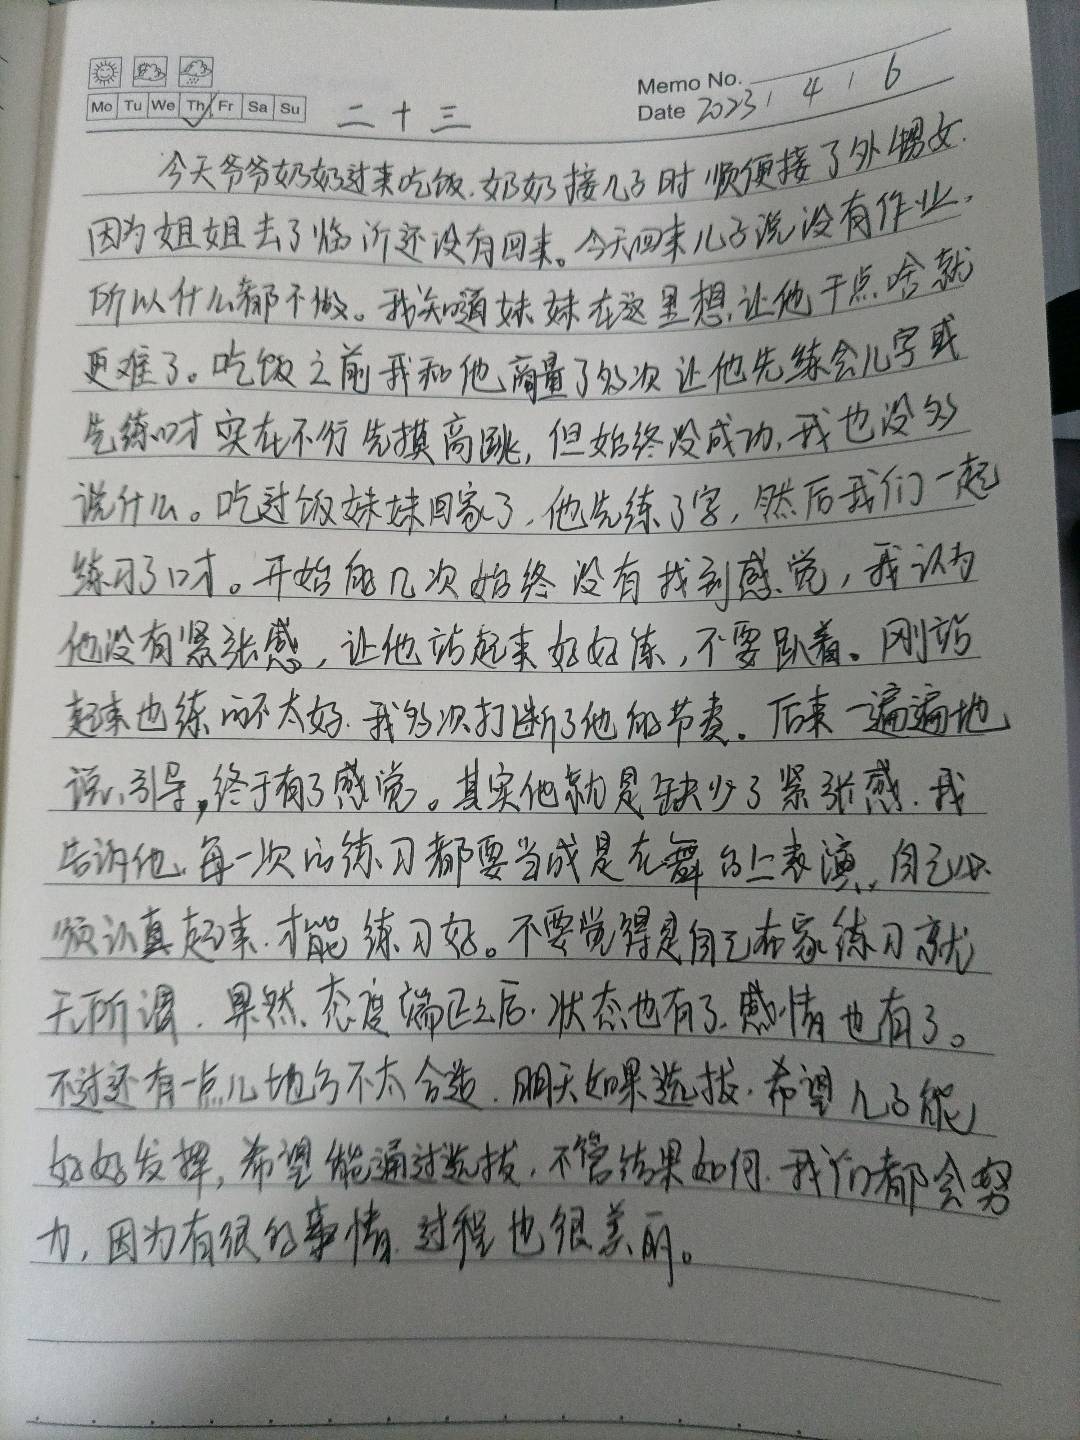 Memo No.
Mo Tu We Th Fr Sa Su
二十三
Date 2023 / 4 / 6
今天爷爷奶奶过来吃饭.奶奶接儿子时顺便接了外甥女.
因为姐姐去了临沂还没有回来。今天回来儿子说没有作业,
所以什么都不做。我知道妹妹在这里想让他干点啥就
更难了。吃饭之前我和他商量了多次让他先练会儿字或
先练口才实在不行先摸高跳,但始终没成功,我也没多
说什么。吃过饭妹妹回家了,他先练了字,然后我们一起
练习了口才。开始的几次始终没有找到感觉,我认为
他没有紧张感,让他站起来好好练,不要趴着。刚站
起来也练的不太好.我多次打断了他的节奏。后来一遍遍地
说、引导,终于有了感觉。其实他就是缺少了紧张感.我
告诉他,每一次的练习都要当成是在舞台上表演,自己必
须认真起来.才能练习好。不要觉得是自己在家练习就
无所谓.果然,态度端正之后.状态也有了.感情也有了。
不过还有一点儿地方不太合适.明天如果选拔.希望儿子能
好好发挥,希望能通过选拔.不管结果如何.我们都会努
力,因为有很多事情.过程也很美丽。